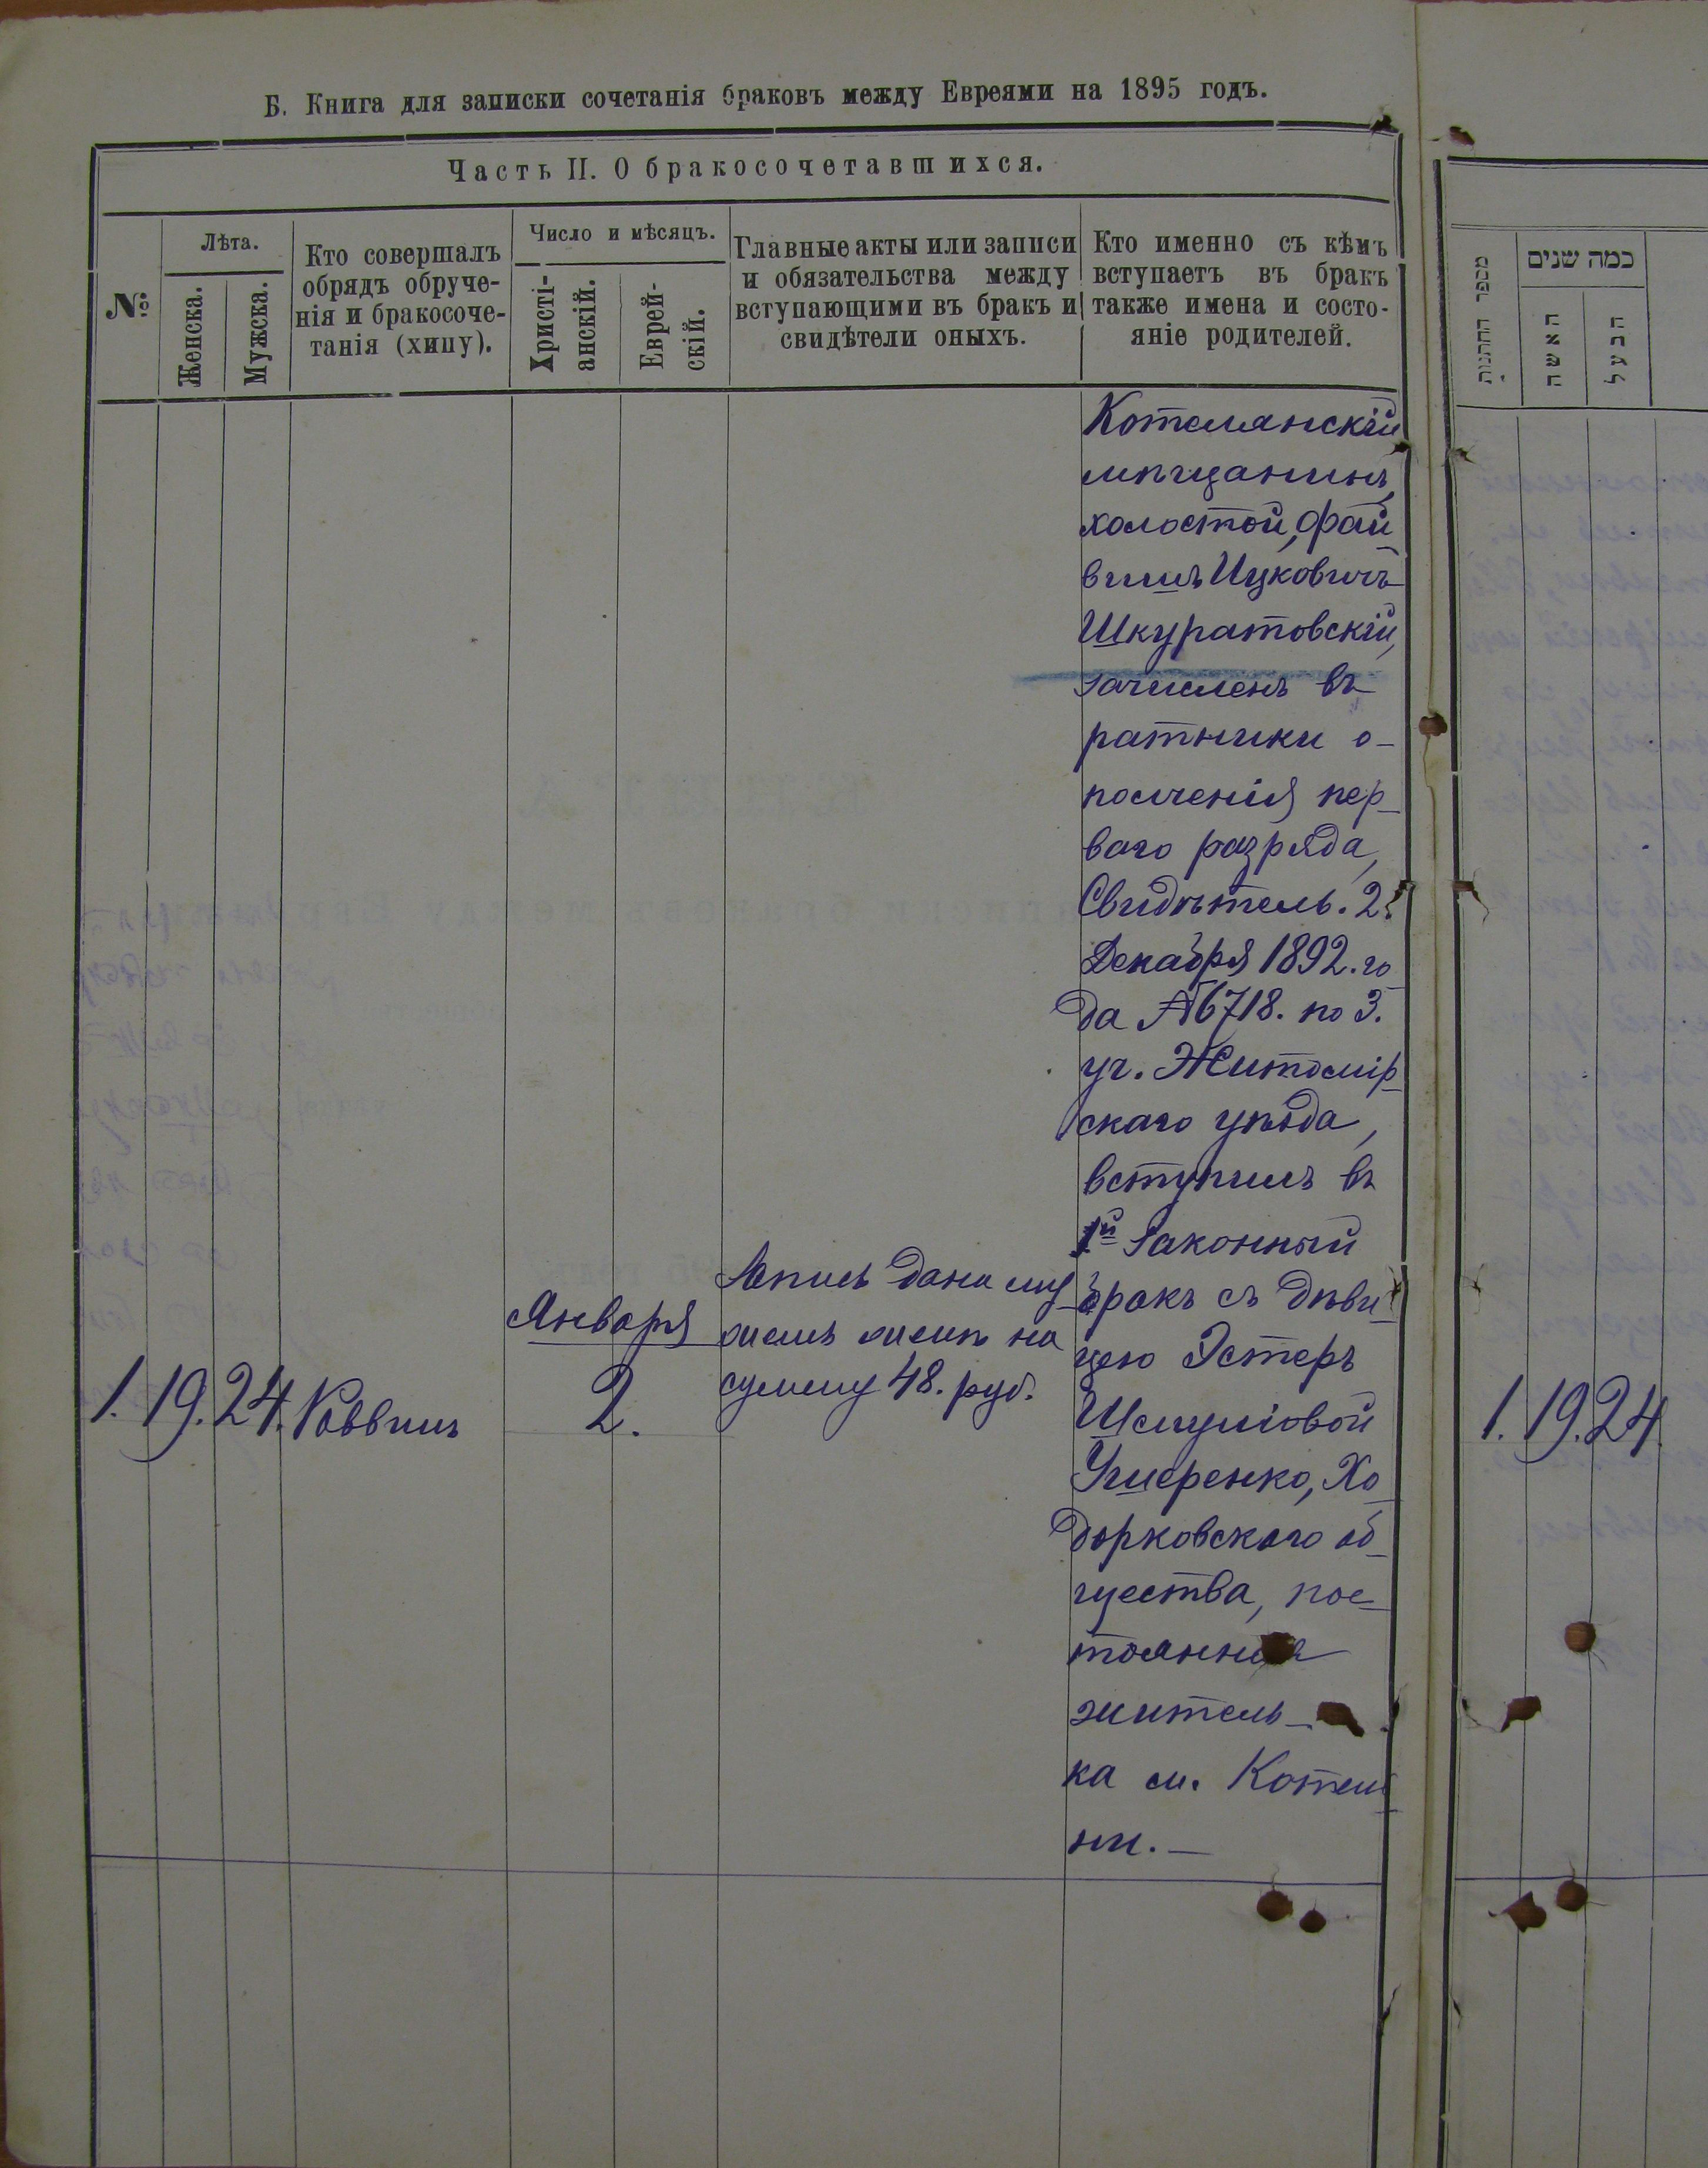 Б. Книга для записки сочетанія браковъ между Евреями на 1895 годъ.
Часть II. О бракосочетавшихся.
№
Лѣта.
Женска.
Мужска.
Кто совершалъ
обрядъ обруче-
нія и бракосоче-
танія (хипу).
Число и мѣсяцъ.
Христі-
анскій.
Еврей-
скій.
Главные акты или записи
и обязательства между
вступающими въ бракъ и
свидѣтели оныхъ.
Кто именно съ кѣмъ
вступаетъ въ бракъ
также имена и состо-
яніе родителей.
1. 19. 24. Раввинъ
Января
2.
Запись дана му
жемъ женѣ на
сумму 48. руб.
Котелянскій
мѣщанинъ,
холостой, Фай
вишъ Ицковичъ
Шкуратовскій,
зачисленъ въ
ратники о-
полченія пер-
ваго разряда,
Свидѣтель. 2
Декабря 1892. го
да №6718. по 3.
уч. Житомір
скаго уѣзда,
вступилъ въ
1й законный
бракъ съ дѣви
цею Эстеръ
Шмуліовой
Ушеренко, Хо
дорковскаго об
щества, пос
тоянная
житель-
ка м. Котель
ни. —
מספר החתנות
כמה שנים
האשה
הבעל
1. 19. 24